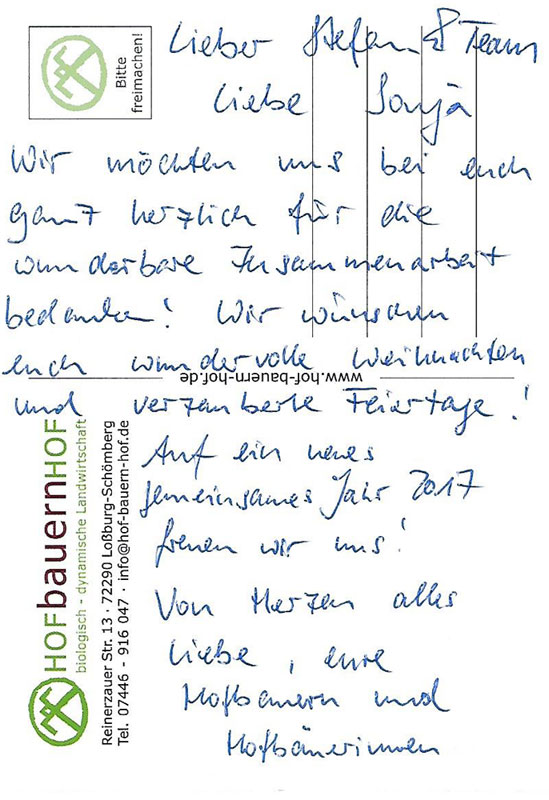 Lieber Stefan & Team
Liebe Sonja
Wir möchten uns bei euch
ganz herzlich für die
wunderbare Zusammenarbeit
bedanken! Wir wünschen
euch wundervolle Weihnachten
und verzauberte Feiertage!
Auf ein neues
gemeinsames Jahr 2017
freuen wir uns!
Von Herzen alles
Liebe, eure
Hofbauern und
Hofbäuerinnen
Bitte
freimachen!
www.hof-bauern-hof.de
HOFbauernHOF
biologisch - dynamische Landwirtschaft
Reinerzauer Str. 13 · 72290 Loßburg-Schömberg
Tel. 07446 - 916 047 · info@hof-bauern-hof.de